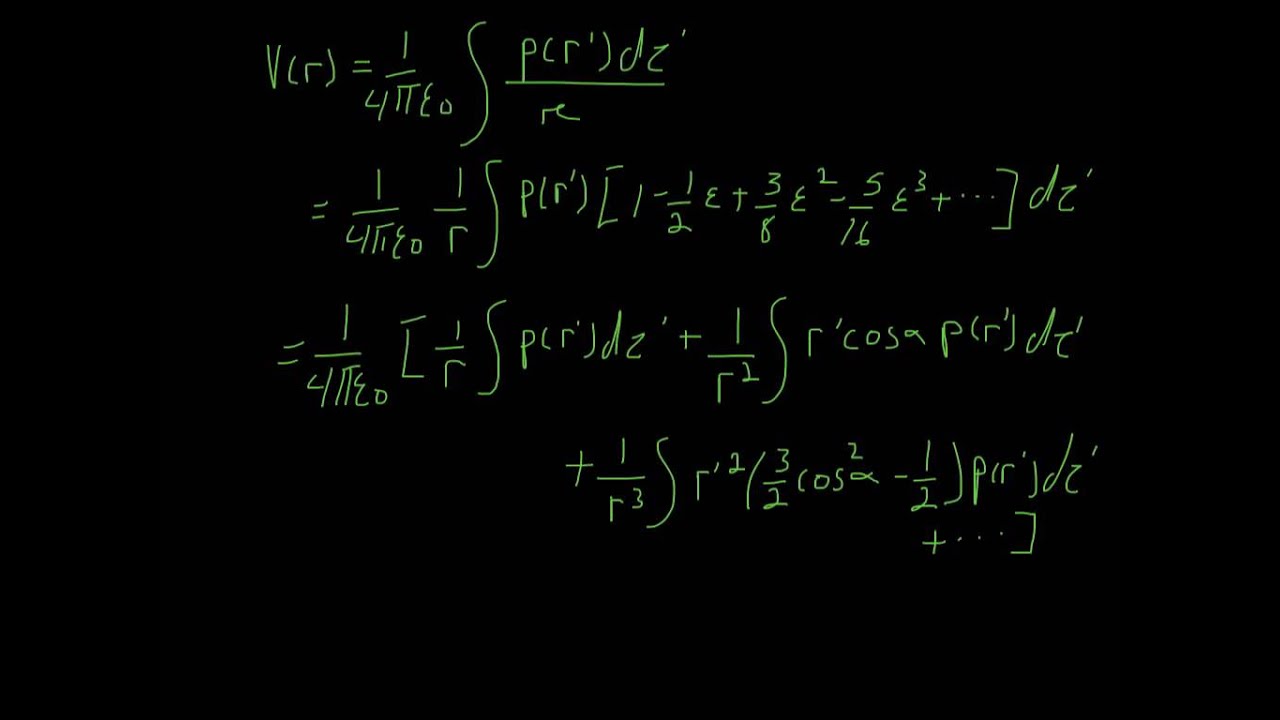 V(r) = 1/4πε₀ ∫ ρ(r')dτ'/𝓇
= 1/4πε₀ 1/r ∫ ρ(r')[1 - 1/2 ε + 3/8 ε² - 5/16 ε³ + ⋯] dτ'
= 1/4πε₀ [1/r ∫ ρ(r')dτ' + 1/r² ∫ r'cosα ρ(r')dτ'
+ 1/r³ ∫ r'²(3/2 cos²α - 1/2)ρ(r')dτ'
+ ⋯]